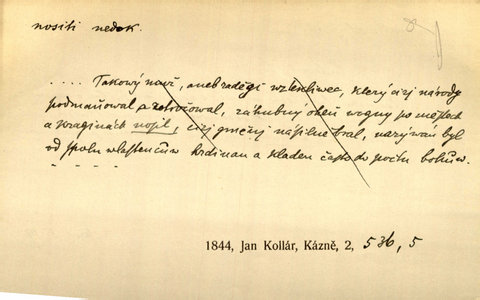 nositi nedok.
.... Takowý muž, aneb raděgi wztekliwec, který cizj národy
podmaňoval a zotročowal, záhubný oheň wogny po městech
a kraginách nosil, cizj gměnj násilně bral, nazýwán byl
od spoluwlastencůw hrdinau a kladen často do počtu bohůw.
- - - - -
1844, Jan Kollár, Kázně, 2, 536, 5